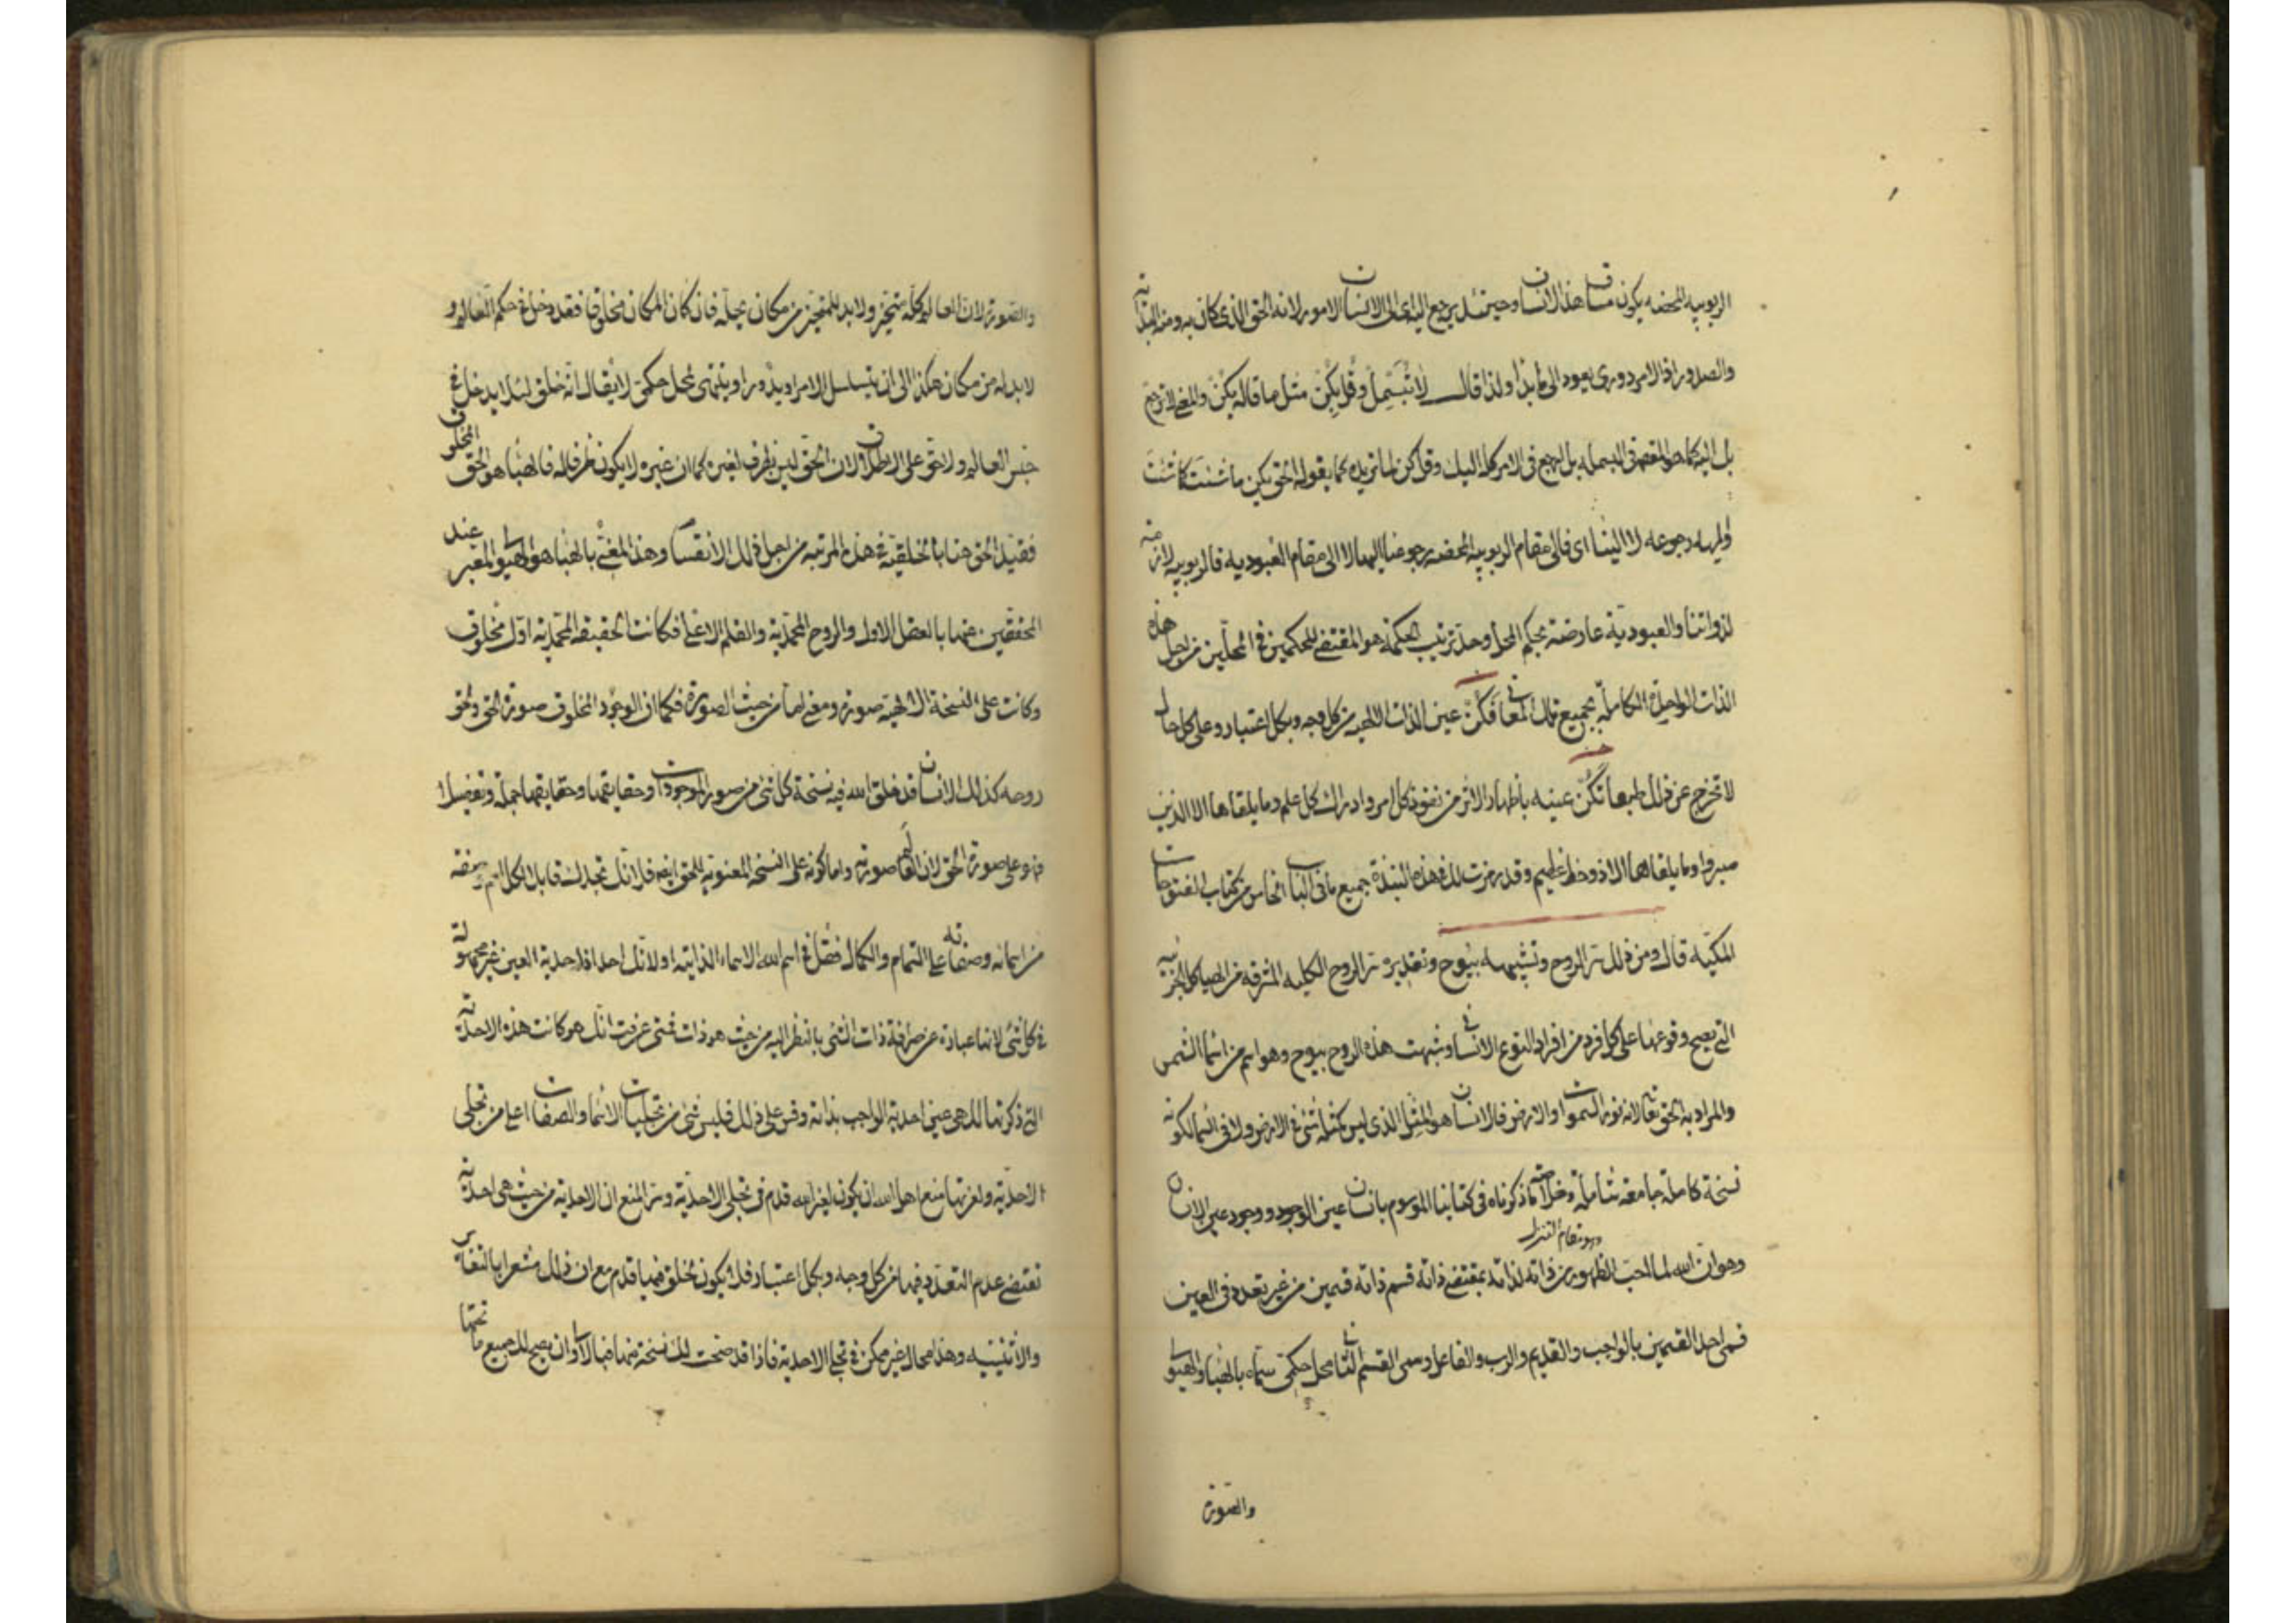 الربوبيه المحضه يكون مساق هذا الانسان وحينئذ يرجع اليه اى الى الانسان الامور لانه الحق الذى كان به ومنه البداية
والصدور اذ الامر دورى يعود الى ما بدأ ولذا قال لا تبسمل وقل بكن مثل ما قاله يكن والمعنى لا ترجع
بل اليه كما هو المفهوم فى البسمله بل ارجع فى الامر كله اليك وقل كن لما تريد كما يقوله الحق يكن ما شئت كما شئت
واليه رجوعه لا الينا اى فالى مقام الربوبيه المحضه رجوعنا اليها لا الى مقام العبوديه فالربوبيه لازمة
لذواتنا والعبودية عارضة بحكم المحل وحد ترتيب الحكمة هو المقتضى للحكمين فى المحلين من اجل هذه
الذات الواحدة الكاملة بجميع تلك المعانى فكن عين الذات الالهيه من كل وجه وبكل اعتبار وعلى كل حال
لا تخرج عن ذلك طبعا تكن عينه باظهار الاثر من نفوذ كل امر وادراك كل علم وما يلقاها الا الذين
صبروا وما يلقاها الا ذو حظ عظيم وقد رمزت لك فى هذه النبذة جميع ما فى الباب الخامس من كتاب الفتوحات
المكيّة قال ومن ذلك سر الروح وتشبيهه بيوح وتقديره سر الروح الكليه المشرقه من الهياكل الجزئيه
التى يصح وقوعها على كل فرد من افراد النوع الانسانى وشبهت هذه الروح بيوح وهو اسم من اسما الشمس
والمراد به الحق تعالى لانه نور السموات والارض فالانسان هو المثل الذى ليس كمثله شئ فى الارض ولا فى السما لكونه
نسخة كاملة جامعة شاملة وخلاصة ما ذكرناه فى كتابنا الموسوم بانسان عين الوجود ووجود عين الانسان
وهو مقام التنزل
وهو ان الله لما احب الظهور من ذاته لذاته بمقتضى ذاته قسم ذاته قسمين من غير تعدد فى العين
فسمى احد القسمين بالواجب والقديم والرب والفاعل وسمى القسم الثانى محل حكمى سماه بالهبا والهيولى
والصورة
والصورة لان العالم كله متحيّز ولا بد للمتحيز من مكان يحله فان كان المكان مخلوقا فقد دخل فى حكم العالم و
لا بد له من مكان هكذا الى ان يتسلسل الامر او يدور او ينتهى لمحل حكمى لا يقال انه خلق لئلا يدخل فى
جنس العالم ولا حق على الاطلاق لان الحق ليس بظرف لغيره كما ان غيره لا يكون ظرفا له فالهبا هو الحق المخلوق
فقيّد الحق هنا بالخلقيّة فى هذه المرتبه من اجل ذلك الانقسام وهذا المعنى بالهبا هو الهيولى المعبر عند
المحققين عنها بالعقل الاول والروح المحمدية والقلم الاعلى فكانت الحقيقه المحمديه اول مخلوق
وكانت على النسخة الالهيه صورة ومعنى اما من حيث الصورة فكما ان الوجود المخلوق صورة الحق والحق
روحه كذلك الانسان قد خلق الله فيه نسخة كل شئ من صور الموجودات وحقايقها وحقايقها جملة وتفصيلا
فهو على صورة الحق لان العالم صورته واما كونه على النسخه المعنويه للحق ايضا فلانك تجدك قابلا لكل اسم وصفه
من اسمائه وصفاته على التمام والكمال فضلا فى اسم الله الاسماء الذاتيه اولانك احد اذ احدية العين غير مجهولة
فى كل شئ لانها عبارة عن صرافة ذات الشئ بالنظر اليه من حيث هو ذات فمتى عرفت انك هو كانت هذه الاحدية
التى ذكرتها لك هى عين احدية الواجب بذاته وقس على ذلك فليس شئ من تجليات الاسما والصفات اعلى من تجلى
الاحديّة ولعزتها منع اهل الله ان يكون لغير الله قدم فى تجلى الاحدية وسر المنع ان الاحدية من حيث هى احدية
تقتضى عدم التعدد فيها من كل وجه وبكل اعتبار فلا يكون للخلق فيها قدم مع ان ذلك مشعر بالتغاير
والاثنينيه وهذا محال غير ممكن فى تجلى الاحديه فاذا قد صحت لك نسخة منها فبالاولى ان يصح لك جميع ما تحتها